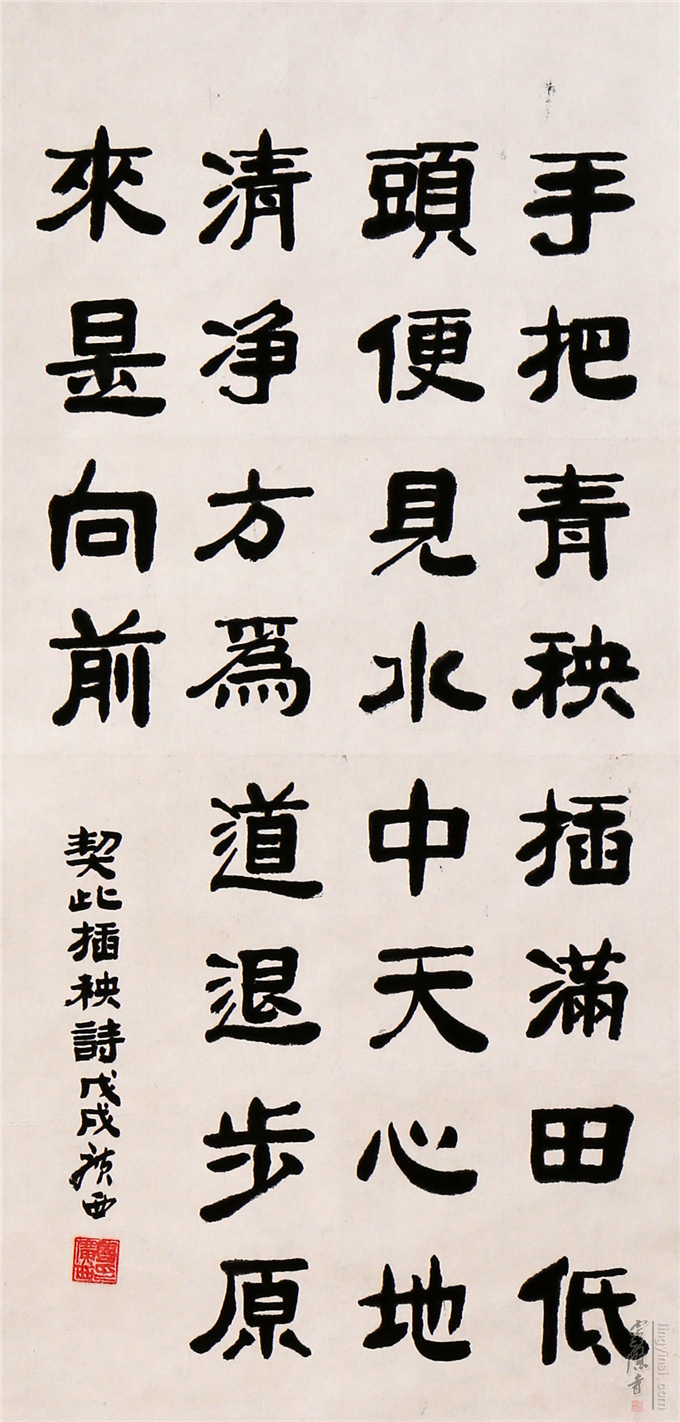 手把青秧插滿田低
頭便見水中天心地
清净方爲道退步原
來是向前
契此插秧詩戊戌廣西
lingyinsi.com